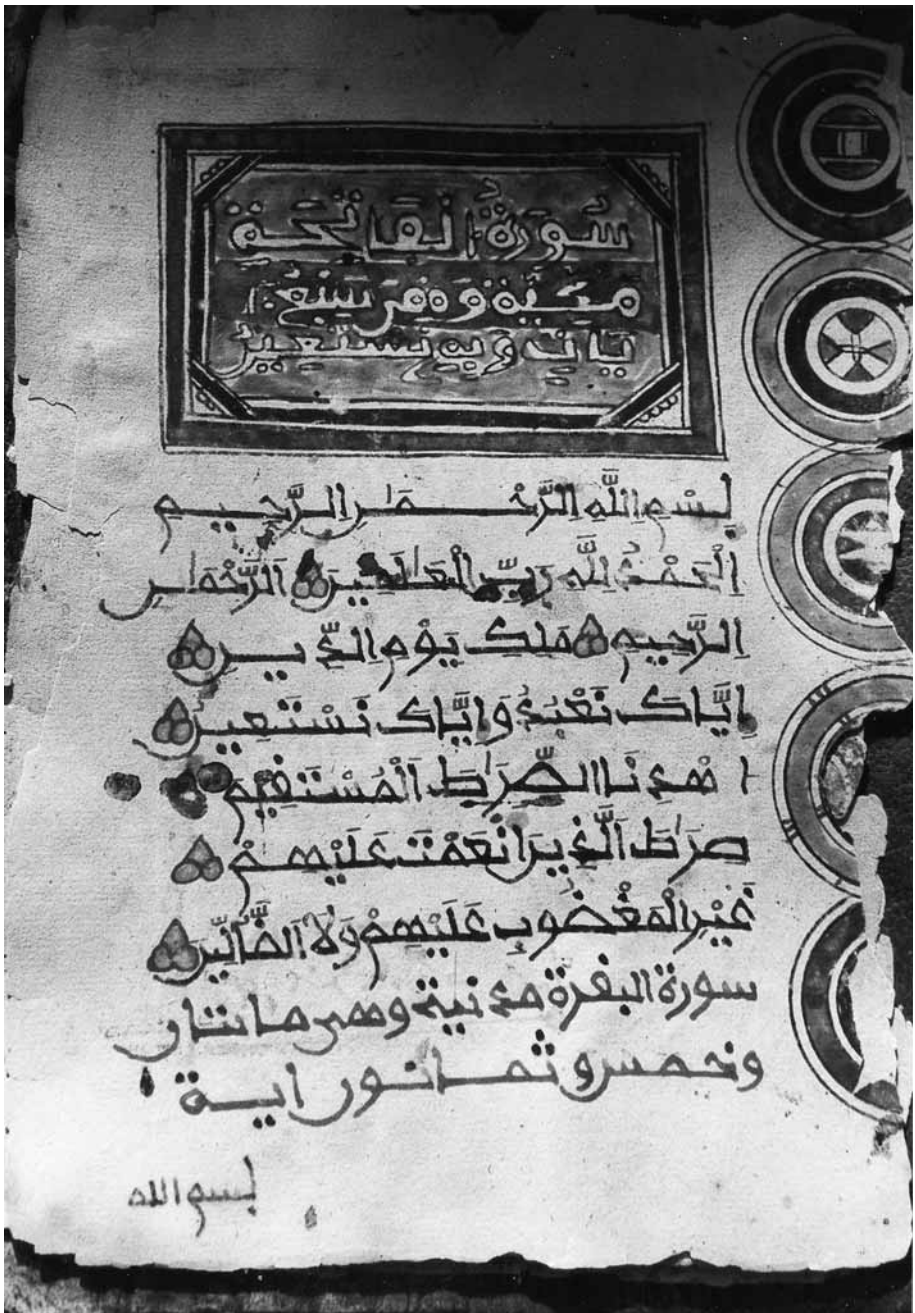 سُورَةُ الْفَاتِحَةِ
مَكِّيَّةٌ وَهِيَ
نَسْتَعِينُ
بِسْمِ اِللَّهِ اِلرَّحْمَٰنِ اِلرَّحِيمِ
اِلْحَمْدُ لِلَّهِ رَبِّ اِلْعَٰلَمِينَ اَلرَّحْمَٰنِ
اِلرَّحِيمِ مَلِكِ يَوْمِ اِلدِّينِ
اِيَّاكَ نَعْبُدُ وَإِيَّاكَ نَسْتَعِينُ
اهْدِنَا اَلصِّرَٰطَ اَلْمُسْتَقِيمَ
صِرَٰطَ اَلَّذِينَ أَنْعَمْتَ عَلَيْهِمْ
غَيْرِ اِلْمَغْضُوبِ عَلَيْهِمْ وَلَا اَلضَّآلِّينَ
سورة البقرة مدنية وهي مائتان
وخمس وثمانون اية
بسم الله